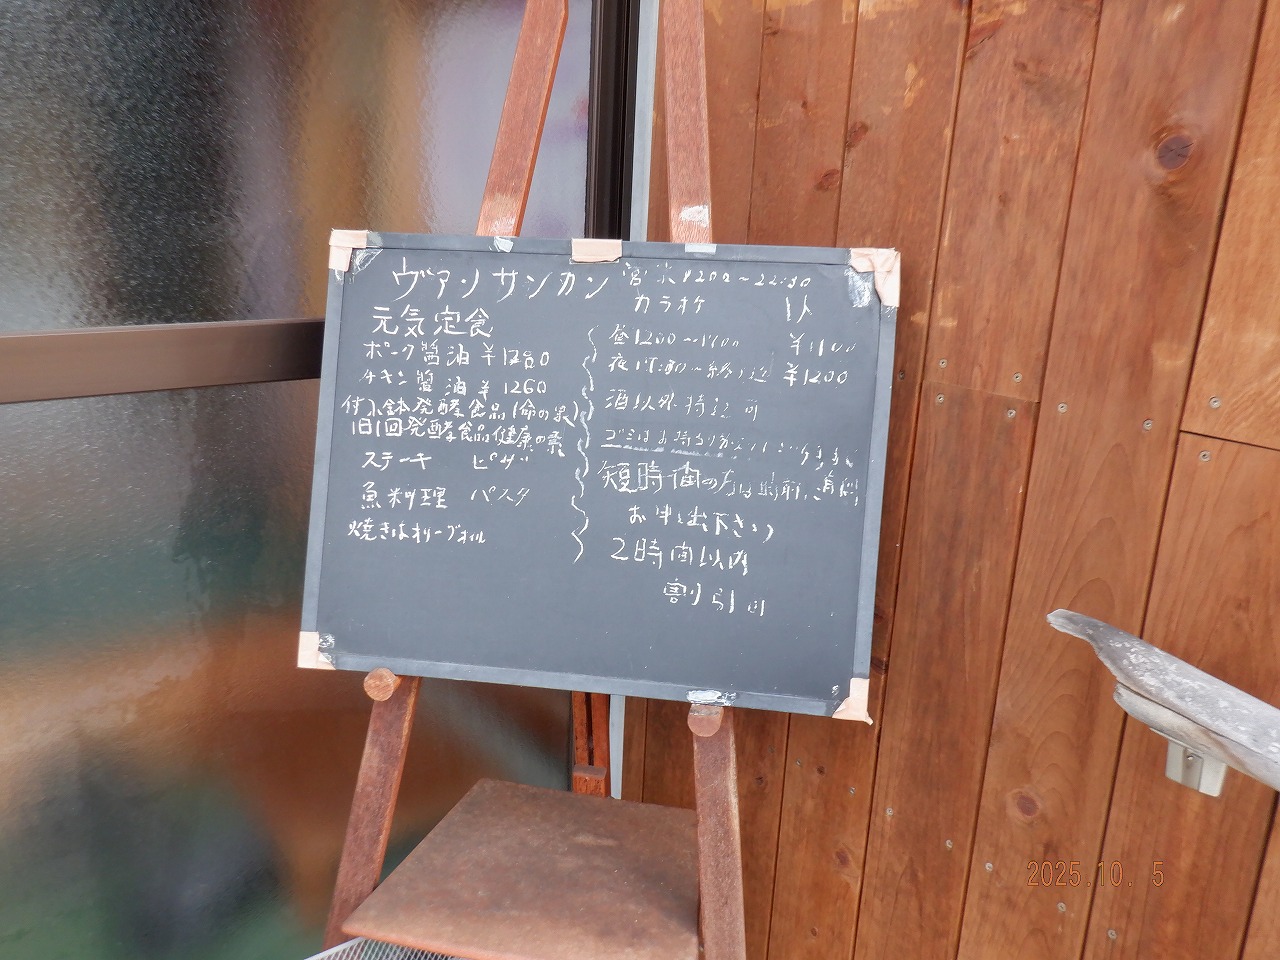 ヴァンサンカン
営業1200~22:30
カラオケ 1人
元気定食
ポーク醤油 ¥1280
チキン醤油 ¥1260
付小鉢発酵食品(命の泉)
1日1回発酵食品健康の素
ステーキ ピザ
魚料理 パスタ
焼きはオリーブオイル
昼1200~1700 ¥1100
夜 ~終り迄 ¥1200
酒以外持込可
ゴミはお持ちかえり
短時間の方は時前に
お申し出下さい
2時間以内
割引可
2025.10. 5